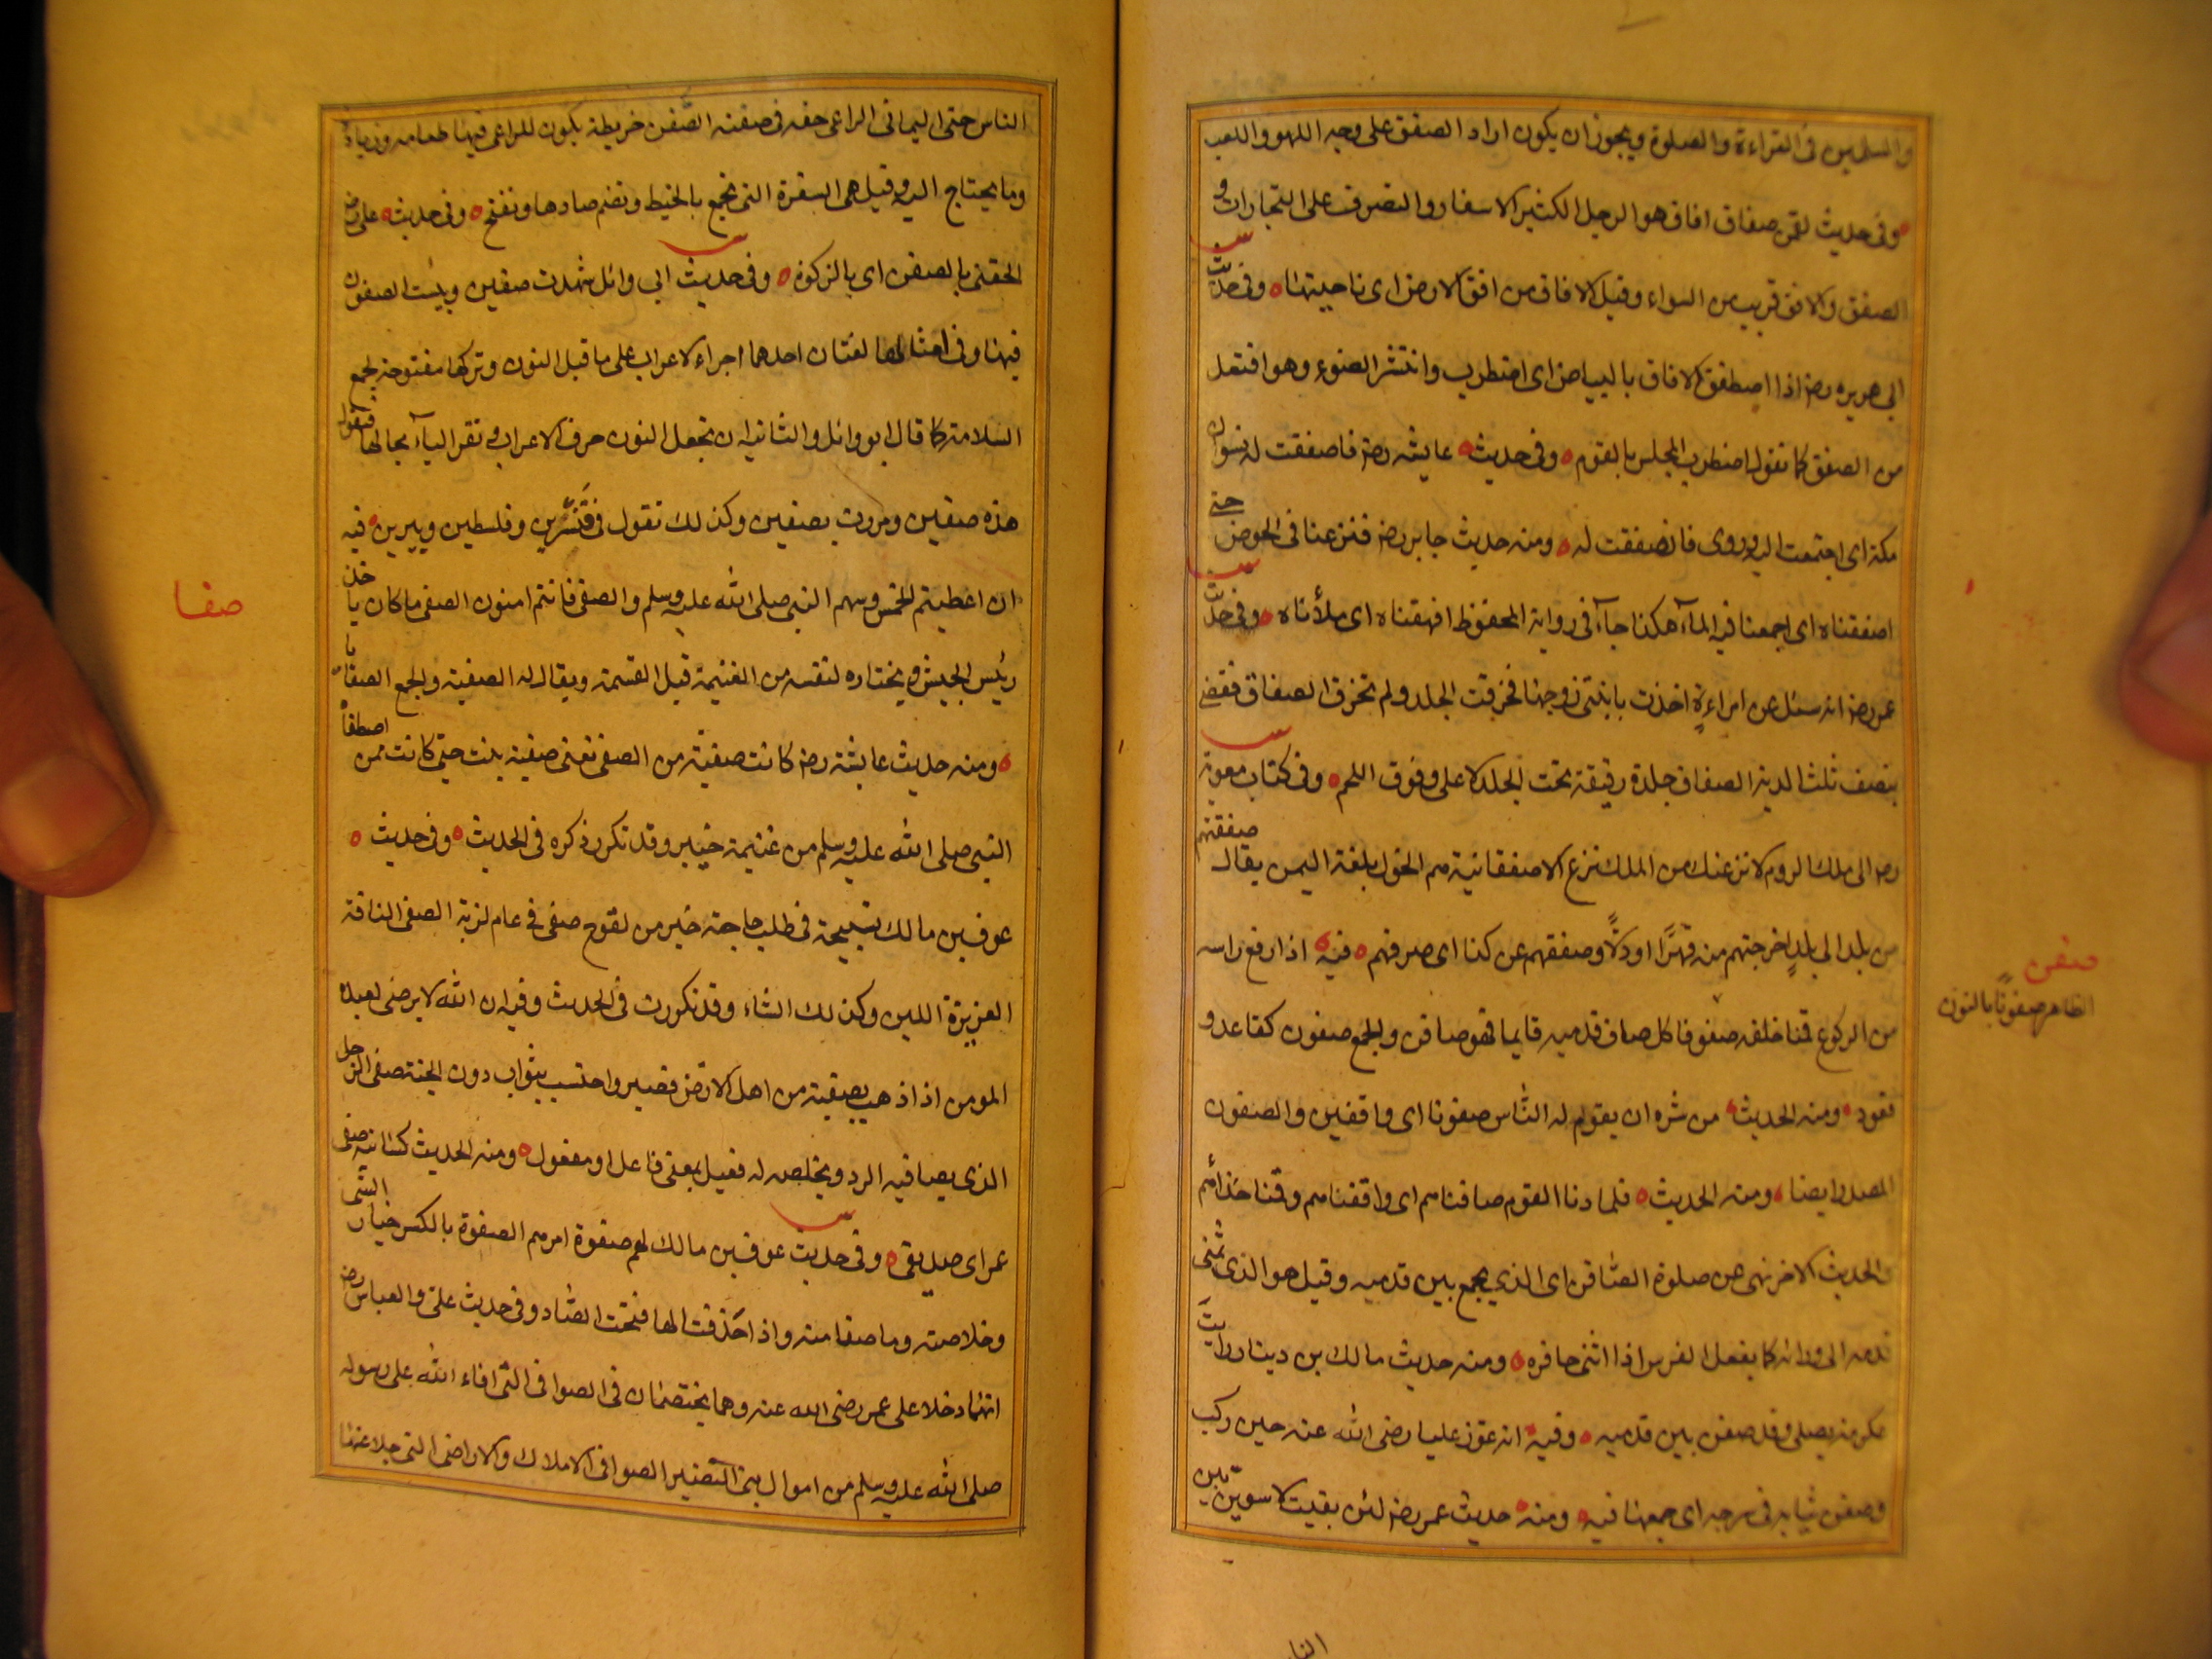 والمسلمين فى القراءة والصلوة ويجوز ان يكون اراد الصفق على وجه اللهو واللعب
وفى حديث لقمن صفاق افاق هو الرجل الكثير الاسفار والتصرف على التجارات و
الصفق والافق قريب من السواء وقيل الافاق من افق الارض اى ناحيتها وفى حديث
ابى هريره رضـ اذا اصطفق الافاق بالبياض اى اضطرب وانتشر الضوء وهو افتعل
من الصفق كما تقول اضطرب المجلس بالقوم وفى حديث عايشه رضـ فاصفقت له نسوان
مكة اى اجتمعت اليه وروى فانصفقت له ومنه حديث جابر رضـ فنزعنا فى الحوض حتى
اصفقناه اى اجمعنا فيه المآء هكذا جآء فى رواية المحفوظ افهقناه اى ملأناه وفى حديث
عمر رضـ انه سئل عن امراءة اخذت بانثى زوجها فخرقت الجلد ولم تخرق الصفاق فقضى
بنصف ثلث الدية الصفاق جلدة رقيقة تحت الجلد الاعلى وفوق اللحم وفى كتاب معوية
رضـ الى ملك الروم لانزعنك من الملك نزع الاصفقانية هم الخول بلغة اليمن يقال صفقتهم
من بلد الى بلد اخرجتهم منه قهرًا اوذلًا وصفقهم عن كذا اى صرفهم فيه اذا رفع راسه
من الركوع قمنا خلفه صفوفا كل صاف قدميه قايما فهو صافن والجمع صفون كقاعد و
قعود ومنه الحديث من سره ان يقوم له الناس صفونا اى واقفين والصفون
المصدر ايضا ومنه الحديث فلما دنا القوم صافناهم اى واقفناهم وقمنا حذاهم
والحديث الاخر نهى عن صلوة الصافن اى الذى يجمع بين قدميه وقيل هو الذى يثنى
قدمه الى ورائه كما يفعل الفرس اذا اثنى حافره ومنه حديث مالك بن دينار رايت
عكرمة يصلى وقد صفن بين قدميه وفيه انه عوذ عليا رضى الله عنه حين ركب
وصفن ثيابه فى سرجه اى جمعها فيه ومنه حديث عمر رضـ لئن بقيت لاسوين بين
صفن
الظاهر صفونًا بالنون
النا
الناس حتى اليمانى الراعى حقه فى صفنه الصفن خريطة يكون للراعى فيها طعامه وزناده
وما يحتاج اليه وقيل هى السفرة التى تجمع بالخيط وتضم صادها وتفتح وفى حديث على رضـ
الحقنى بالصفن اى بالركوة وفى حديث ابى وائل شهدت صفين وبئست الصفون
فيها وفى امثالها لغتان احدهما اجراء الاعراب على ما قبل النون وتركها مفتوحة كجمع
السلامة كما قال ابو وائل والثانية ان تجعل النون حرف الاعراب وتقر اليآء بحالها فتقول
هذه صفين ومررت بصفين وكذلك تقول فى قنسرين وفلسطين ويبرين فيه
ان اعطيتم الخمس وسهم النبى صلى الله عليه وسلم والصفى فانتم امنون الصفى ما كان ياخذه
رئيس الجيش ويختاره لنفسه من الغنيمة قبل القسمة ويقال له الصفية والجمع الصفايا
ومنه حديث عايشة رضـ كانت صفية من الصفى تعنى صفية بنت حيى كانت ممن اصطفاه
النبى صلى الله عليه وسلم من غنيمة خيبر وقد تكرر ذكره فى الحديث وفى حديث
عوف بن مالك تسبيحة فى طلب حاجة خير من لقوح صفى فى عام لزبة الصفى الناقة
العزيزة اللبن وكذلك الشاء وقد تكررت فى الحديث وفيه ان الله لا يرضى لعبده
المومن اذا ذهب بصفية من اهل الارض فصبر واحتسب بثواب دون الجنة صفى الرجل
الذى يصافيه الود ويخلصه له فعيل بمعنى فاعل او مفعول ومنه الحديث كسانيه صفى
عمر اى صديقى وفى حديث عوف بن مالك لهم صفوة امرهم الصفوة بالكسر خيار الشى
وخلاصته وما صفا منه واذا حذفت الها فتحت الصاد وفى حديث على والعباس رضـ
انهما دخلا على عمر رضى الله عنه وهما يختصمان فى الصوافى التى افاء الله على رسوله
صلى الله عليه وسلم من اموال بنى النضير الصوافى الاملاك والاراضى التى جلا عنها
صفا